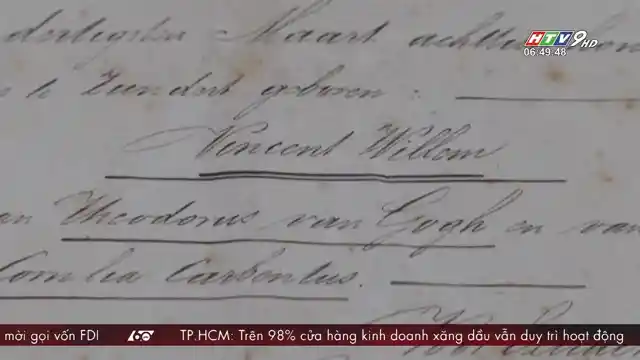 HTV9 HD
06:49:48
dertigsten Maart achttien hon
te Zundert geboren:
Vincent Willem
an Theodorus van Gogh en van
Cornelia Carbentus.
mời gọi vốn FDI 60 TP.HCM: Trên 98% cửa hàng kinh doanh xăng dầu vẫn duy trì hoạt động